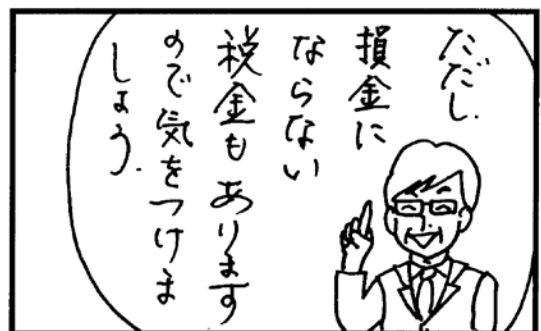 ただし
損金に
ならない
税金もあります
ので気をつけま
しょう.